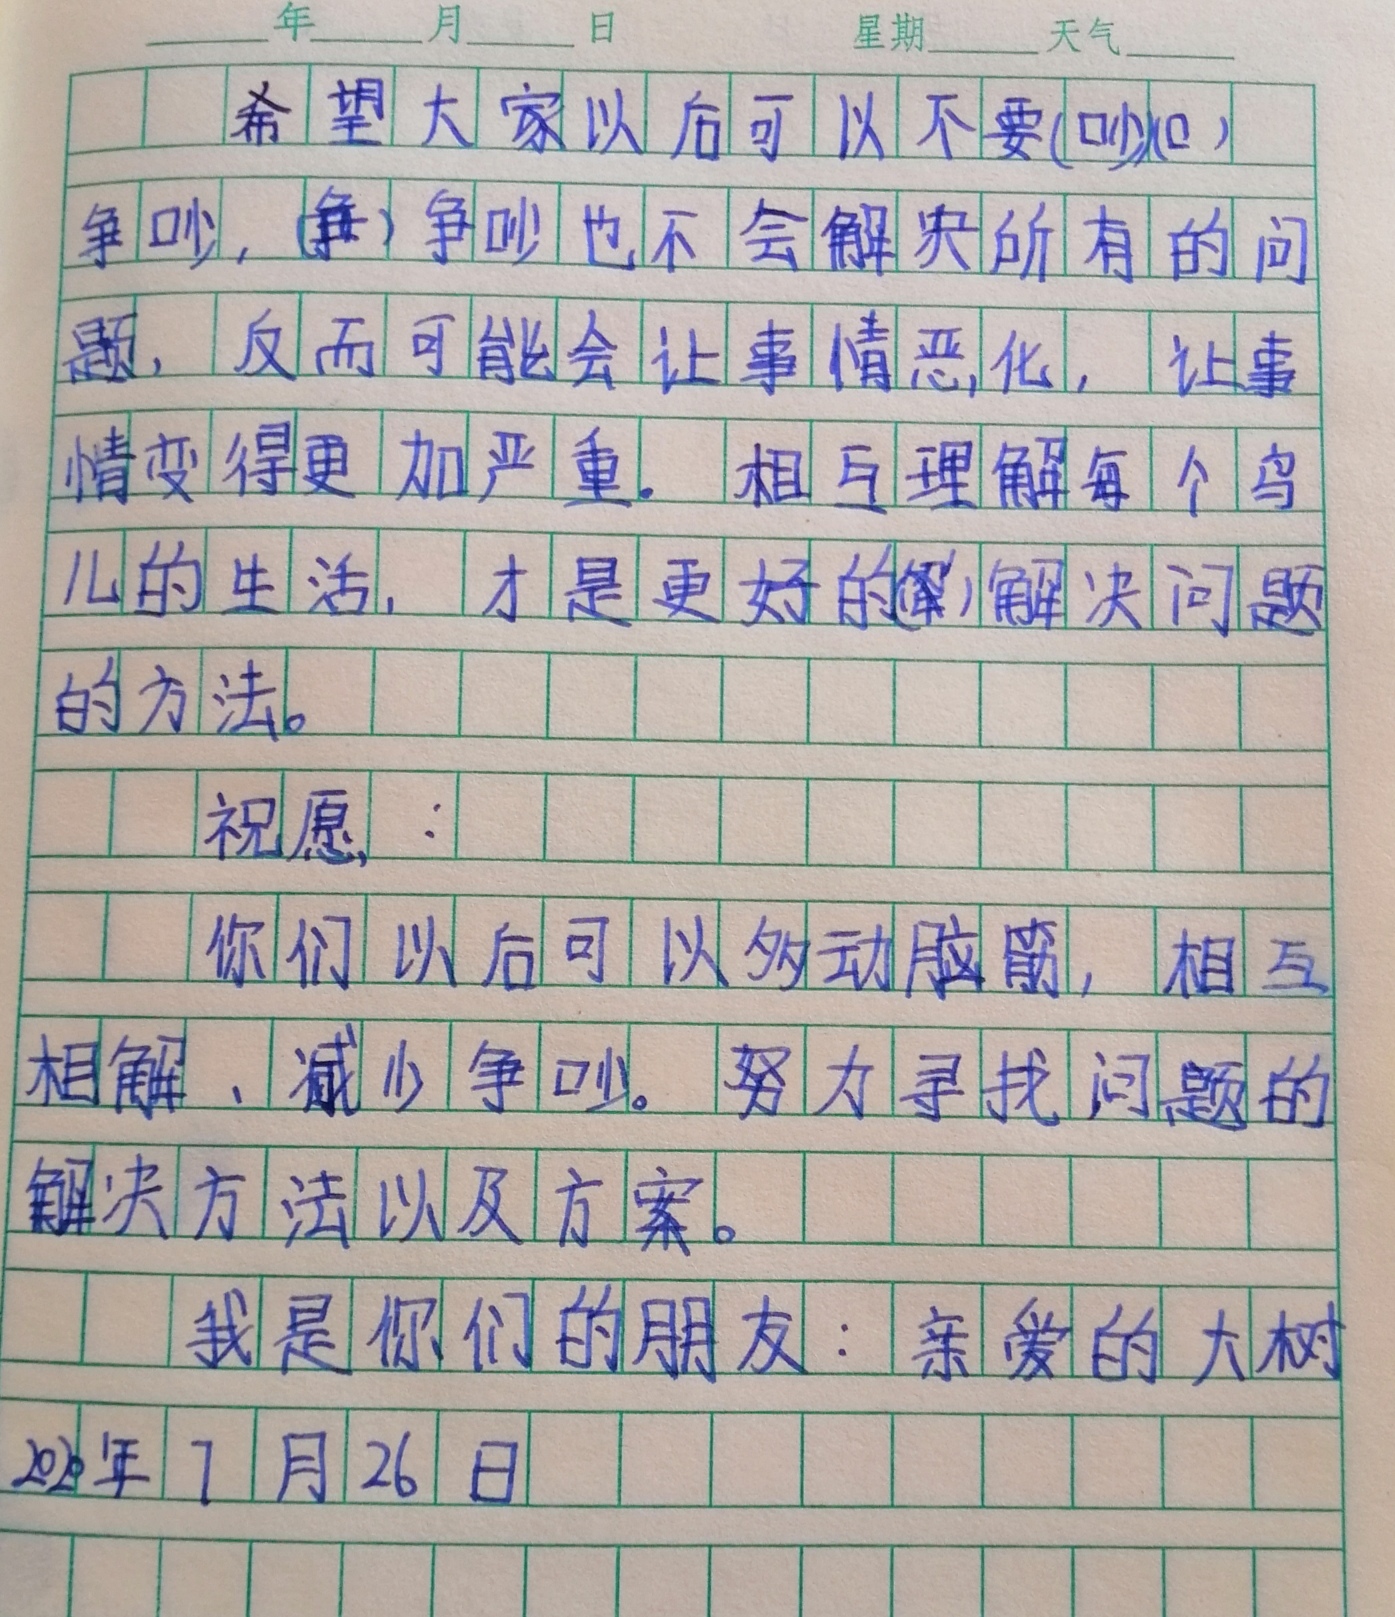 年 月 日 星期 天气
希望大家以后可以不要(吵)(口)
争吵,(争)争吵也不会解决所有的问
题,反而可能会让事情恶化,让事
情变得更加严重。相互理解每个鸟
儿的生活,才是更好的(解)解决问题
的方法。
祝愿:
你们以后可以多动脑筋,相互
相解、减少争吵。努力寻找问题的
解决方法以及方案。
我是你们的朋友:亲爱的大树
2020年7月26日